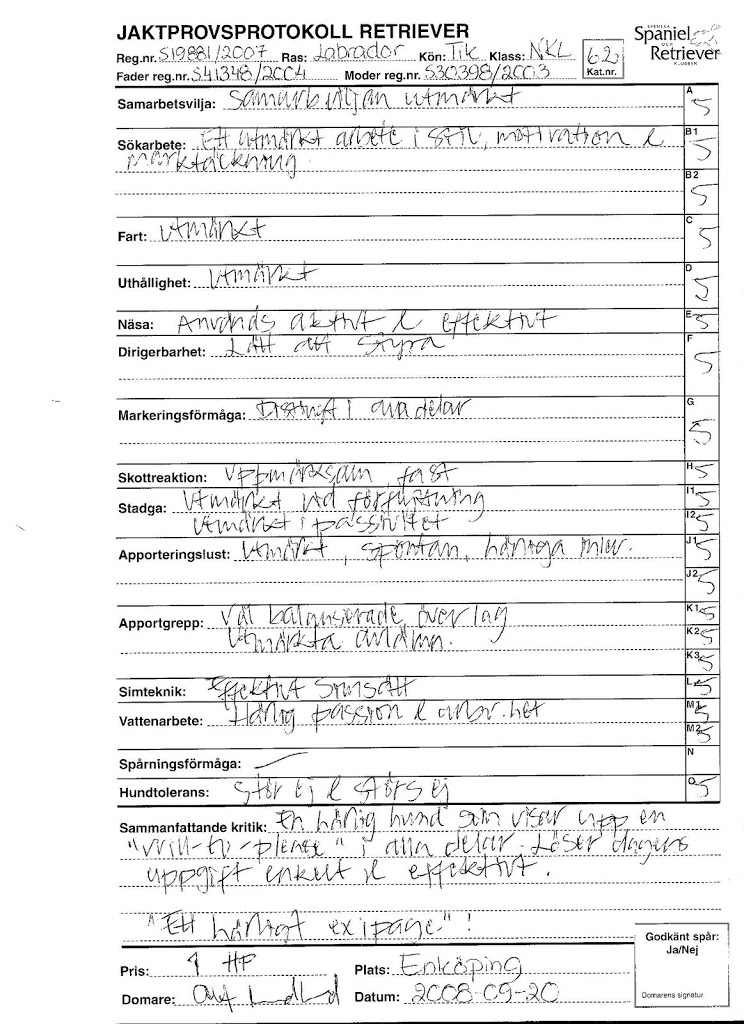 JAKTPROVSPROTOKOLL RETRIEVER
SVENSKA Spaniel OCH Retriever KLUBBEN
Reg.nr. S19881/2007 Ras: Labrador Kön: Tik Klass: NKL 62 Kat.nr.
Fader reg.nr. S41348/2004 Moder reg.nr. S30398/2003
Samarbetsvilja: Samarbetsviljan utmärkt A 5
Sökarbete: Ett utmärkt arbete i stil, motivation & B1 5
marktäckning
B2 5
Fart: Utmärkt C 5
Uthållighet: Utmärkt D 5
Näsa: Används aktivt & effektivt E 5
Dirigerbarhet: Lätt att styra F 5
Markeringsförmåga: Distinkt i alla delar G 5
Skottreaktion: Uppmärksam, fast H 5
Stadga: Utmärkt vid förflyttning I1 5
Utmärkt i passivitet I2 5
Apporteringslust: Utmärkt, spontan, härliga J1 5
J2 5
Apportgrepp: Väl balanserade överlag K1 5
Utmärkta avlämn. K2 5
K3 5
Simteknik: Effektivt simsätt L 5
Vattenarbete: Härlig passion & M1 5
M2 5
Spårningsförmåga: — N
Hundtolerans: Stör ej & störs ej O 5
Sammanfattande kritik: En härlig hund som visar upp en
"will-to-please" i alla delar. Löser dagens
uppgift enkelt & effektivt.
"Ett härligt "!
Godkänt spår:
Ja/Nej
Pris: 1 HP Plats: Enköping
Domare: Datum: 2008-09-20
Domarens signatur